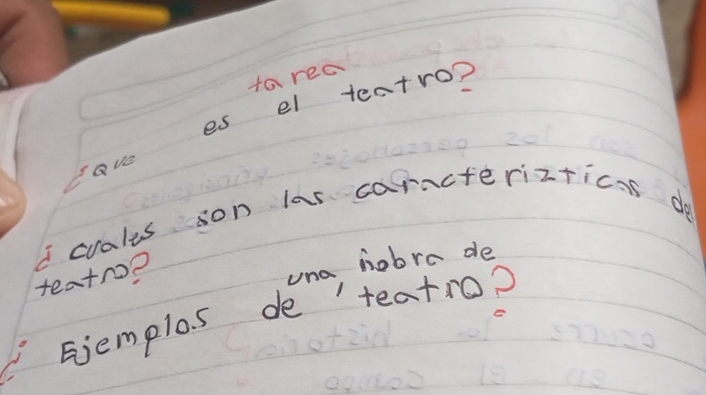 tarea
¿Que es el teatro?
¿cuales son las caracterizticas del
teatro?
¿Ejemplos de una hobra de
teatro?